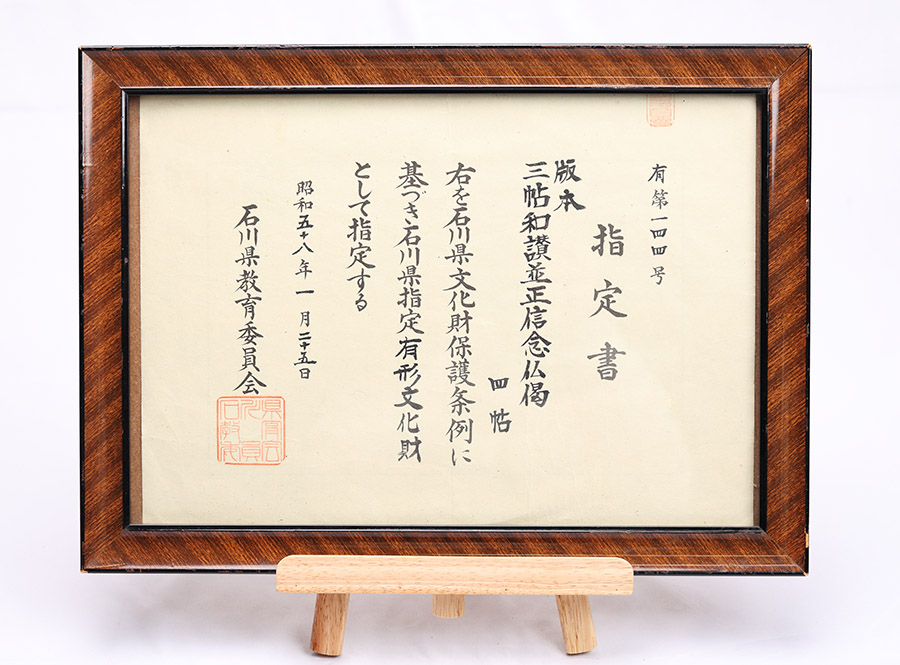 有第一四四号
指定書
版本
三帖和讃並正信念仏偈
四帖
右を石川県文化財保護条例に
基づき石川県指定有形文化財
として指定する
昭和五十八年一月二十五日
石川県教育委員会